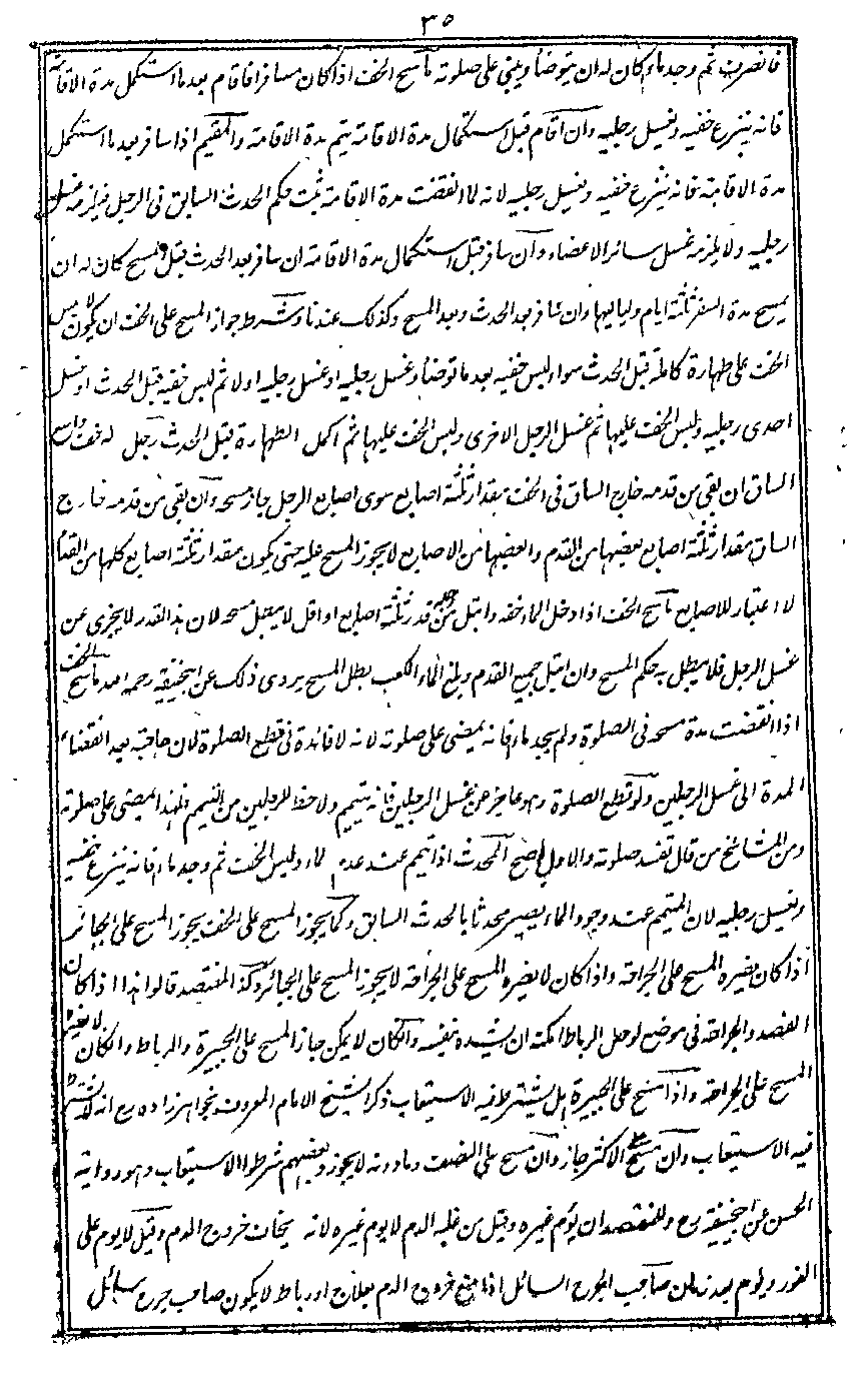 ٣٥
فانصرف ثم وجد ماء كان له ان يتوضأ ويبنى على صلوته ماسح الخف اذا كان مسافرا فاقام بعد ما استكمل مدة الاقامة
فانه ينزع خفيه ويغسل رجليه وان اقام قبل استكمال مدة الاقامة يتم مدة الاقامة والمقيم اذا سافر بعد ما استكمل
مدة الاقامة فانه ينزع خفيه ويغسل رجليه لانه لما انقضت مدة الاقامة ثبت حكم الحدث السابق فى الرجل فيلزمه غسل
رجليه ولا يلزمه غسل سائر الاعضاء وان سافر قبل استكمال مدة الاقامة ان سافر بعد الحدث قبل المسح كان له ان
يمسح مدة السفر ثلثة ايام ولياليها وان سافر بعد الحدث وبعد المسح وكذلك عندنا وشرط جواز المسح على الخف ان يكون لابس
الخف على طهارة كاملة قبل الحدث سواء لبس خفيه بعد ما توضأ وغسل رجليه او غسل رجليه اولا ثم لبس خفيه قبل الحدث او غسل
احدى رجليه ولبس الخف عليها ثم غسل الرجل الاخرى ولبس الخف عليها ثم اكمل الطهارة قبل الحدث رجل له خف واسع
الساق ان بقى من قدمه خارج الساق فى الخف مقدار ثلثة اصابع سوى اصابع الرجل جاز مسحه وان بقى من قدمه خارج
الساق مقدار ثلثة اصابع بعضها من القدم وبعضها من الاصابع لا يجوز المسح عليه حتى يكون مقدار ثلثة اصابع كلها من القدم
لا اعتبار للاصابع ماسح الخف اذا دخل الماء خفه وابتل من رجله قدر ثلثة اصابع او اقل لا يبطل مسحه لان هذا القدر لا يجزى عن
غسل الرجل فلا يبطل به حكم المسح وان ابتل جميع القدم وبلغ الماء الكعب بطل المسح يروى ذلك عن ابيحنيفة رحمه الله ماسح الخف
اذا انقضت مدة مسحه فى الصلوة ولم يجد ماء فانه يمضى على صلوته لانه لا فائدة فى قطع الصلوة لان حاجته بعد انقضاء
المدة الى غسل الرجلين ولو قطع الصلوة وهو عاجز عن غسل الرجلين فانه يتيمم ولا حظ للرجلين من التيمم فلهذا يمضى على صلوته
ومن المشائخ من قال تفسد صلوته والاول اصح المحدث اذا تيمم عند عدم الماء ولبس الخف ثم وجد ماء فانه ينزع خفيه
ويغسل رجليه لان المتيمم عند وجود الماء يصير محدثا بالحدث السابق وكما يجوز المسح على الخف يجوز المسح على الجبائر
اذا كان يضره المسح على الجراحة واذا كان لا يضره المسح على الجراحة لا يجوز المسح على الجبائر وكذا المفتصد قالوا هذا اذا كان
الفصد والجراحة فى موضع لو حل الرباط امكنه ان يشده بنفسه وان كان لا يمكن جاز المسح على الجبيرة والرباط وان كان لا يضره
المسح على الجراحة واذا مسح على الجبيرة هل يشترط فيه الاستيعاب ذكر الشيخ الامام المعروف بخواهر زاده رح انه لا يشترط
فيه الاستيعاب وان مسح على الاكثر جاز وان مسح على النصف وما دونه لا يجوز وبعضهم شرطوا الاستيعاب وهو رواية
الحسن عن ابيحنيفة رح وللمفتصد ان يؤم غيره وقيل من غلبه الدم لا يؤم غيره لانه يخاف خروج الدم وقيل لا يؤم على
الفور ويؤم بعد زمان صاحب الجرح السائل اذا منع خروج الدم بعلاج او رباط لا يكون صاحب جرح سائل